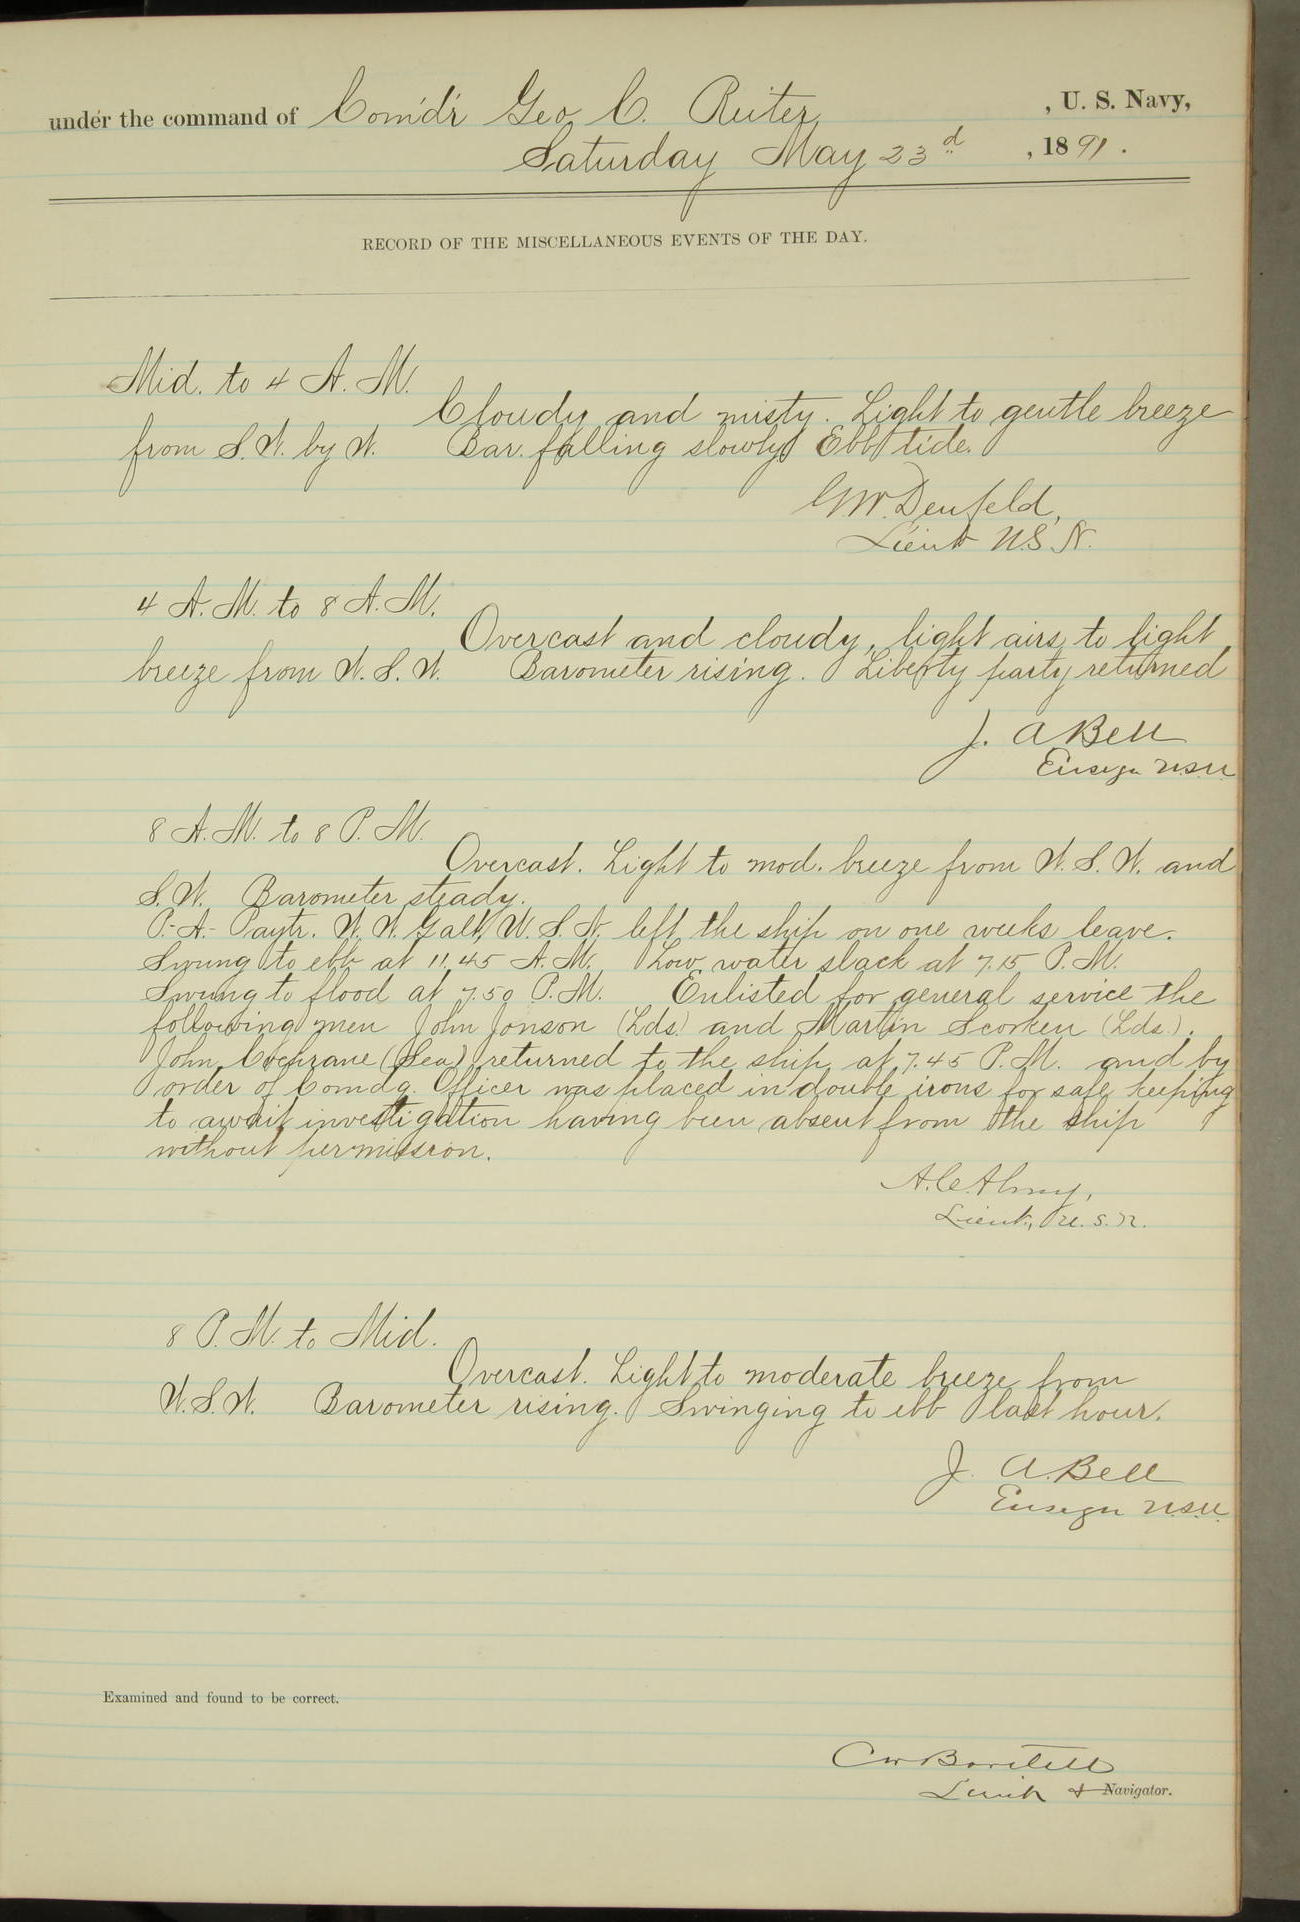 under the command of Com'd'r Geo. C. Reiter, U. S. Navy,
Saturday May 23d, 1891.
RECORD OF THE MISCELLANEOUS EVENTS OF THE DAY.
Mid. to 4 A. M.
Cloudy and misty. Light to gentle breeze
from S. W. by W. Bar. falling slowly Ebb tide.
G. W. Denfeld,
Lieut U. S. N.
4 A. M. to 8 A. M.
Overcast and cloudy, light airs to light
breeze from W. S. W. Barometer rising. Liberty party returned
J. A Bell
Ensign U.S.N.
8 A. M. to 8 P. M.
Overcast. Light to mod. breeze from W. S. W. and
S. W. Barometer steady.
P.-A.- Paytr. W. W. Galt, U. S. N. left the ship on one weeks leave.
Swung to ebb at 11.45 A. M. Low water slack at 7.15 P. M.
Swung to flood at 7.50 P. M. Enlisted for general service the
following men John Jonson (Lds.) and Martin (Lds.).
John Cochrane (Sea) returned to the ship at 7.45 P. M. and by
order of Comdg. Officer was placed in double irons for safe keeping
to await investigation having been absent from the ship
without permission.
A. C. Almy,
Lieut., U. S. N.
8 P. M. to Mid.
Overcast. Light to moderate breeze from
W. S. W. Barometer rising. Swinging to ebb last hour.
J. A. Bell
Ensign U.S.N.
Examined and found to be correct.
C W Bartlett
Lieut & Navigator.